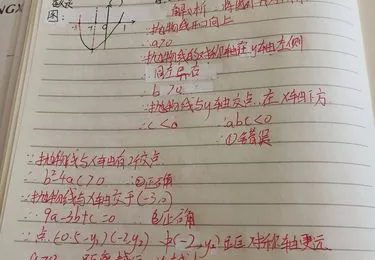 图:
∵抛物线开口向上
∴a>0
∵抛物线的对称轴在y轴左侧
同左异右
∴b>0
∵抛物线与y轴交点在x轴下方
∴c<0 ∴abc<0
∴①错误
∵抛物线与x轴有2个交点
∴b²-4ac>0 ∴②正确
∵抛物线与x轴交于(-3,0)
∴9a-3b+c=0 ③正确
∵点(-0.5,y₁)(-2,y₂) (-2,y₂)距离对称轴更远
a>0